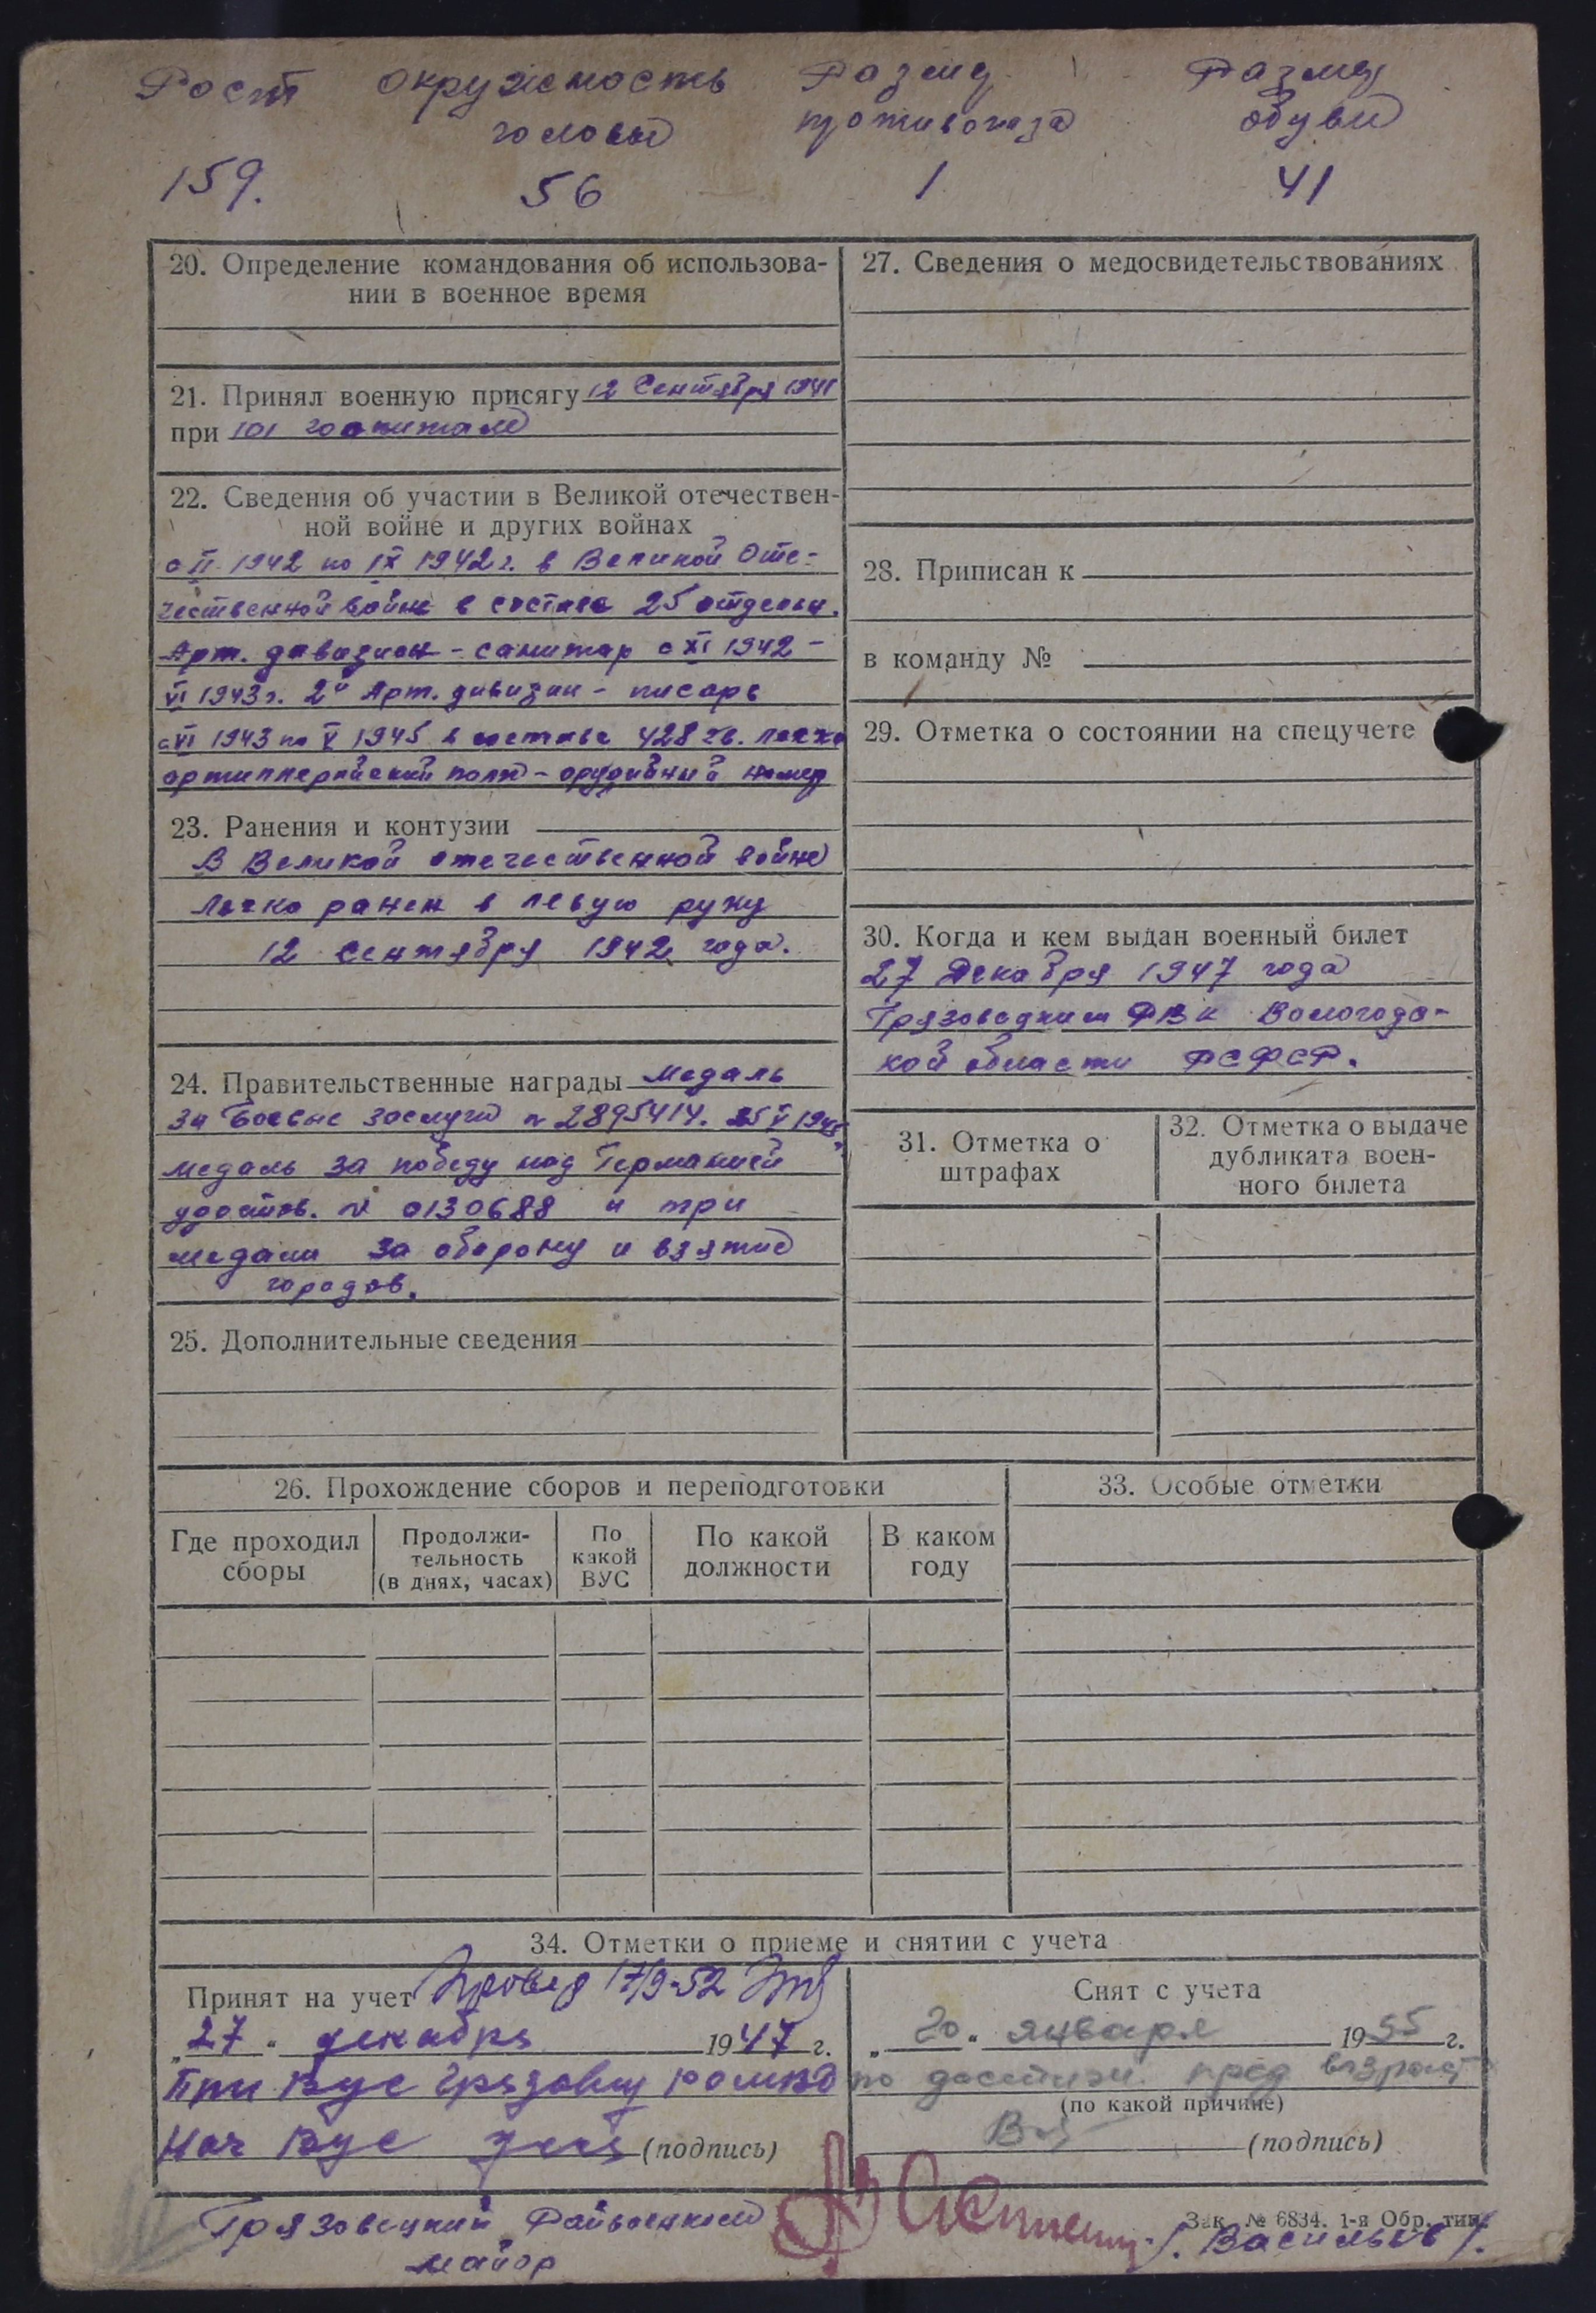 Рост окружность Размер Размер
головы противогаза обуви
159. 56 1 41
20. Определение командования об использова-
нии в военное время
21. Принял военную присягу 12 Сентября 1941
при 101 госпитале
22. Сведения об участии в Великой отечествен-
ной войне и других войнах
с II 1942 по IX 1942 г. в Великой Оте-
чественной войне в составе 25 отдельн.
Арт. дивизион - санитар с XI 1942 -
VI 1943 г. 2й Арт. дивизии - писарь
с VI 1943 по V 1945 в составе 428 гв. легко
артиллерийский полк - орудийный номер
23. Ранения и контузии
В Великой отечественной войне
легко ранен в левую руку
12 сентября 1942 года.
24. Правительственные награды медаль
за боевые заслуги № 2895414. 25 V 1945
медаль за победу над Германией
удостов. № 0130688 и три
медали за оборону и взятие
городов.
25. Дополнительные сведения
27. Сведения о медосвидетельствованиях
28. Приписан к
в команду №
29. Отметка о состоянии на спецучете
30. Когда и кем выдан военный билет
27 Декабря 1947 года
Грязовецким РВК Вологодс-
кой области РСФСР.
31. Отметка о
штрафах
32. Отметка о выдаче
дубликата воен-
ного билета
26. Прохождение сборов и переподготовки
Где проходил
сборы
Продолжи-
тельность
(в днях, часах)
По
какой
ВУС
По какой
должности
В каком
году
33. Особые отметки
34. Отметки о приеме и снятии с учета
Принят на учет 17/9-52
„27“ декабря 1947 г.
При Вус
Нач Вус (подпись)
Снят с учета
„20“ января 1955 г.
по достиж. пред возраст
(по какой причине)
(подпись)
Грязовецкий Райвоенком
майор /. Васильев /.
Зак. № 6834. 1-я Обр. тип.